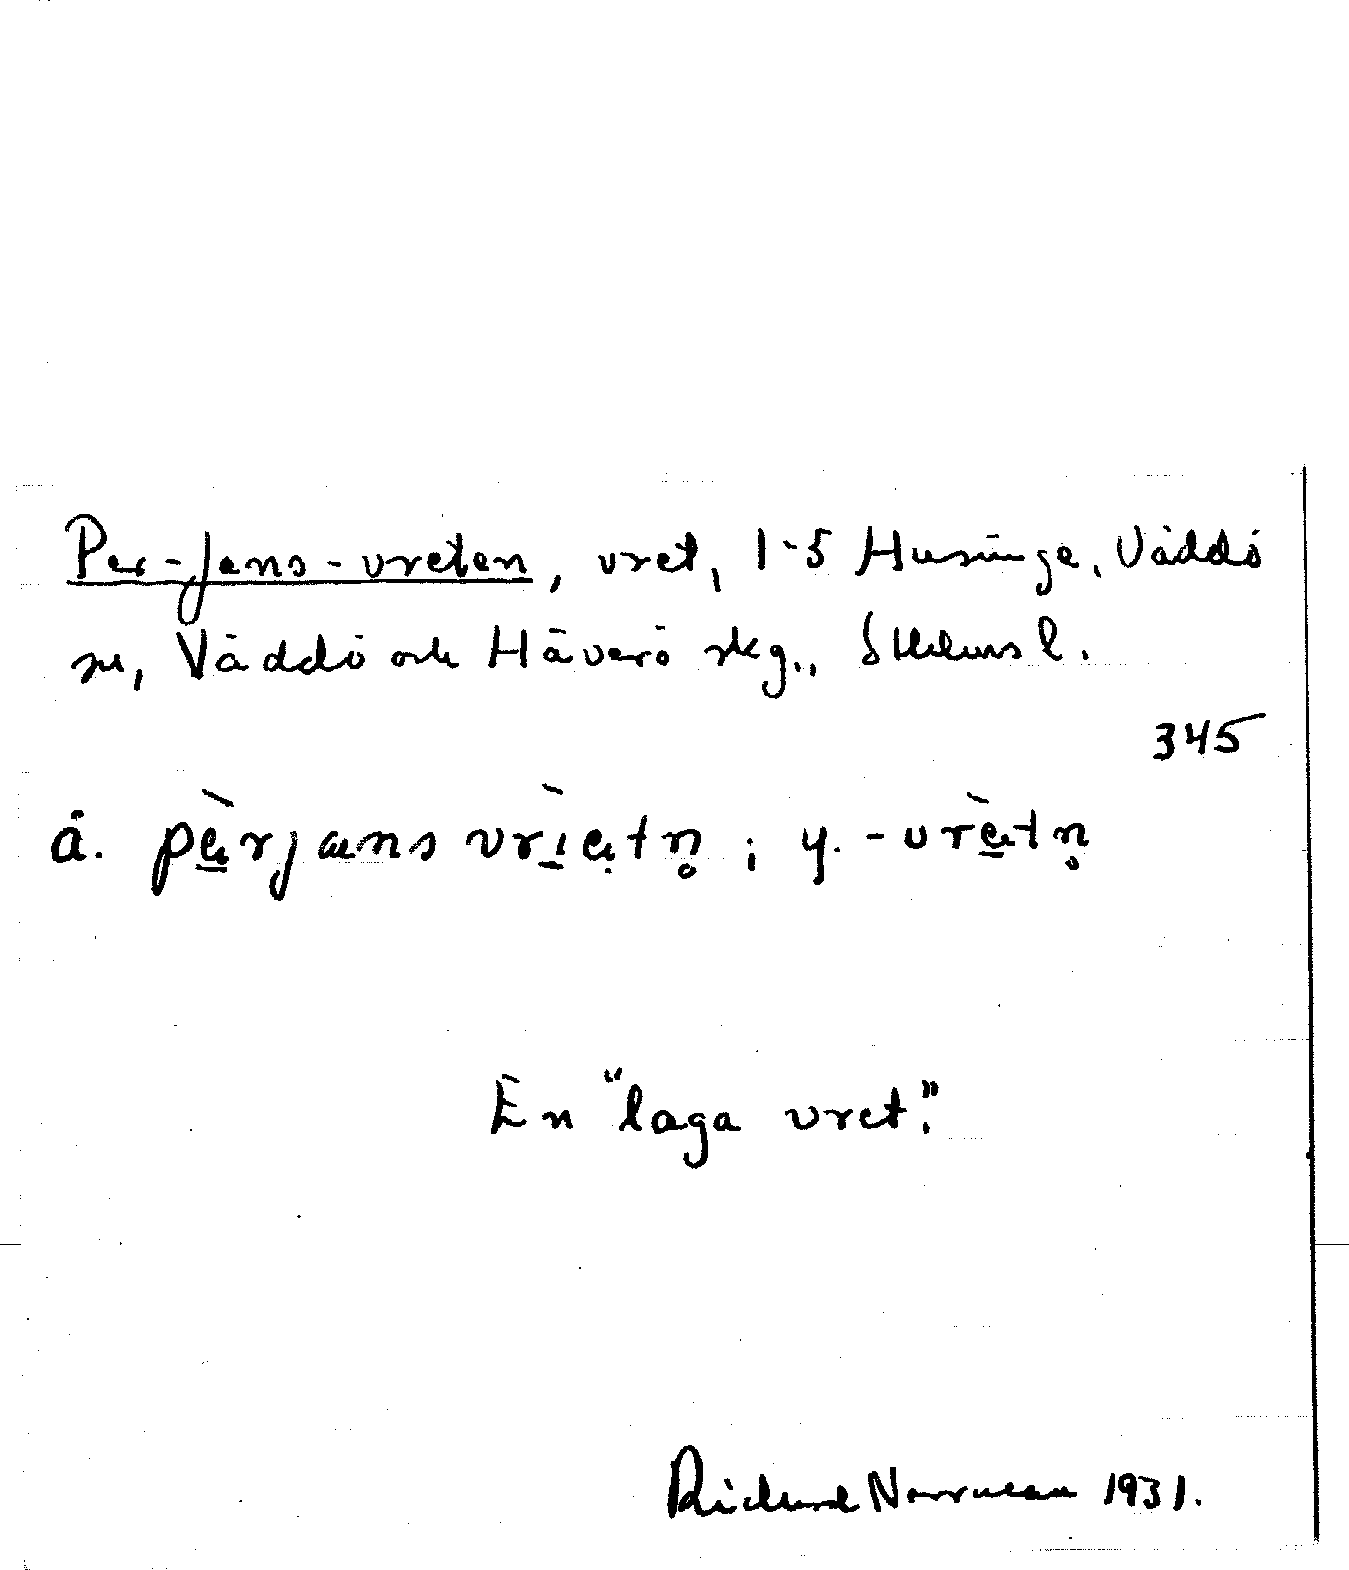 Per-Jans-vreten, vret, 1-5 Husinge, Väddö
sn, Väddö och Häverö skg., Sthlms l.
345
ä. pèrjans vrìetn̥ ; y. -vrètn̥
En "laga vret".
Richard Norrman 1931.